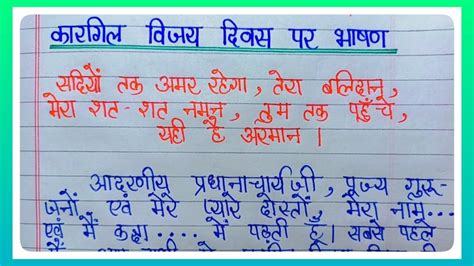 कारगिल विजय दिवस पर भाषण
सदियों तक अमर रहेगा, तेरा बलिदान,
मेरा शत-शत नमन, तुम तक पहुँचे,
यही है अरमान।
आदरणीय प्रधानाचार्य जी, पूज्य गुरु-
जनों एवं मेरे प्यारे दोस्तों, मेरा नाम....
एवं मैं कक्षा .... में पढ़ती हूँ। सबसे पहले